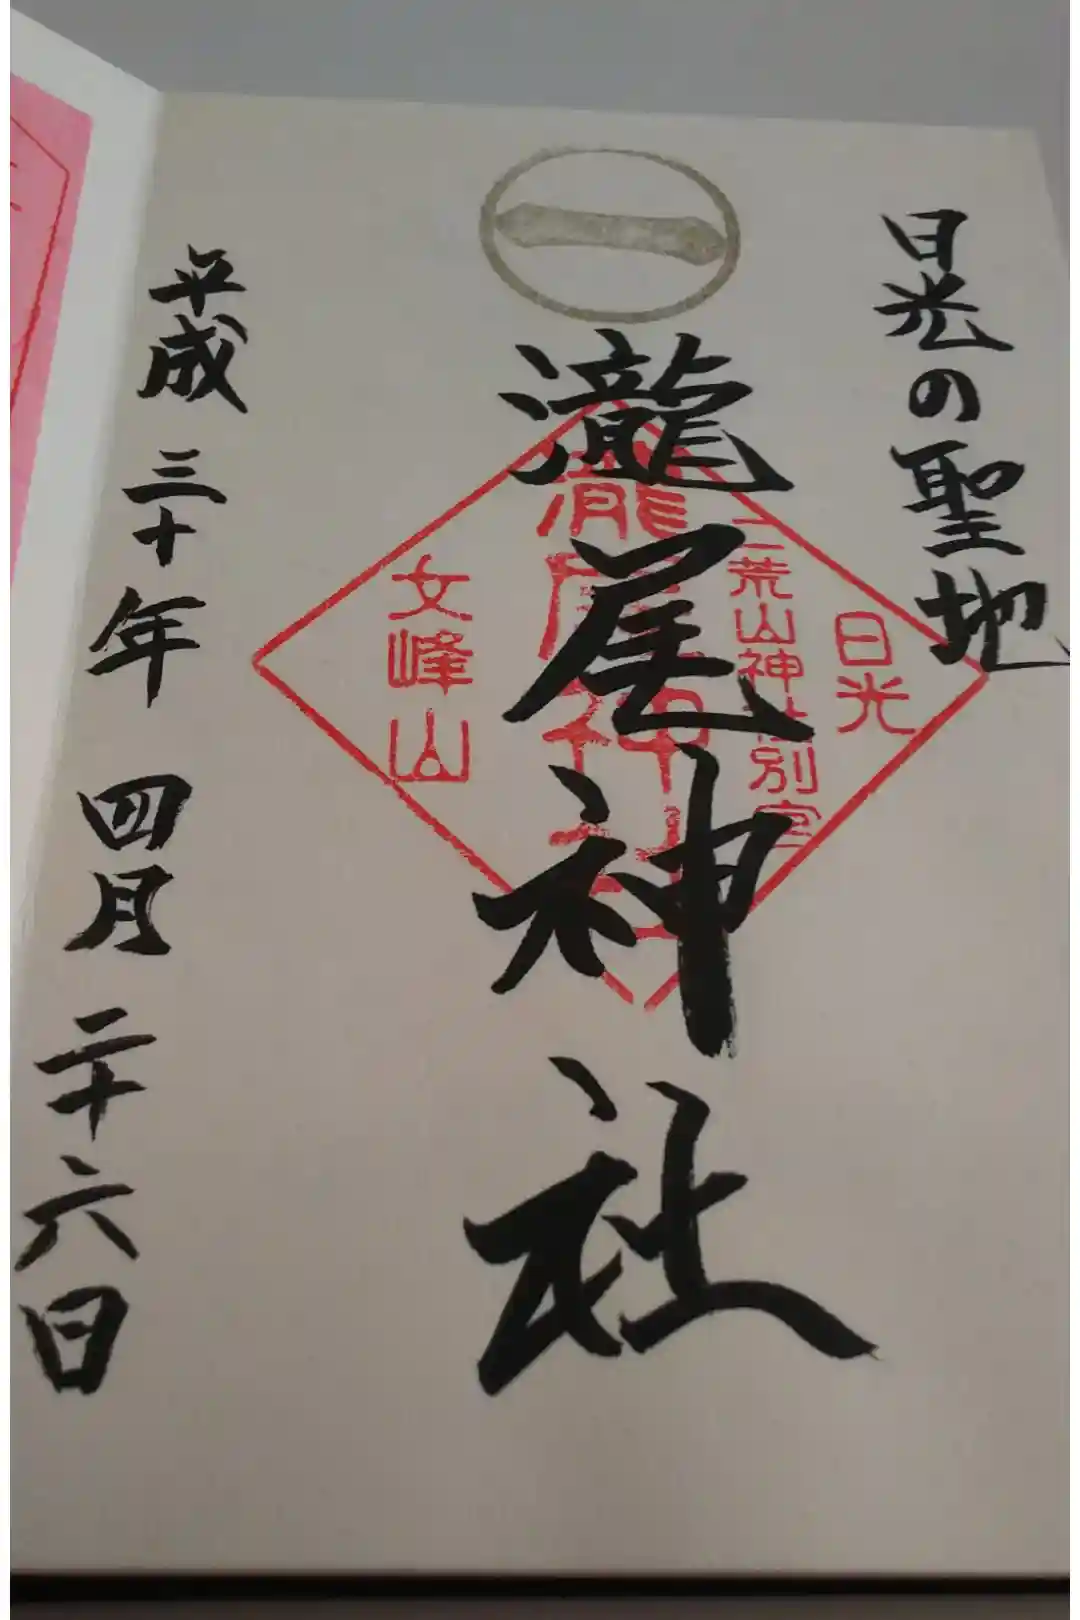 日光の聖地
一
瀧尾神社
日光
二荒山神社別宮
瀧尾神社
女峰山
平成三十年四月二十六日